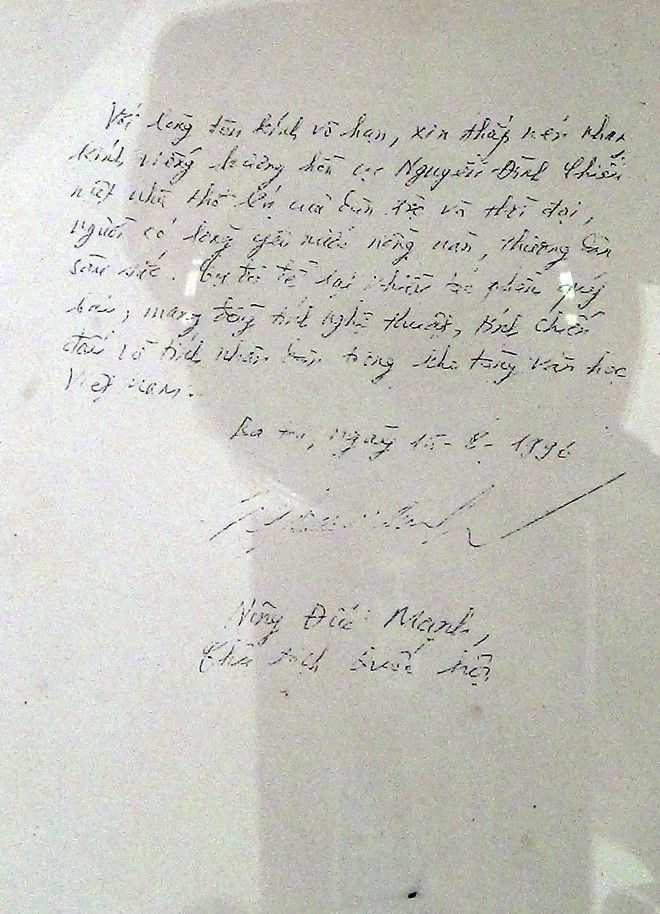 Với lòng tôn kính vô hạn, xin thắp nén nhang
kính viếng hương hồn cụ Nguyễn Đình Chiểu
một nhà thơ lớn của dân tộc và thời đại,
người có lòng yêu nước nồng nàn, thương dân
sâu sắc. Cụ đã để lại nhiều tác phẩm quý
báu, mang đậm tính nghệ thuật, tính chiến
đấu và tính nhân văn trong kho tàng văn học
Việt nam.
Ba tri, ngày 15-8-1996
Nông Đức Mạnh,
Chủ tịch Quốc hội